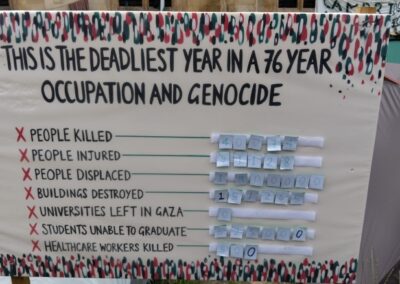 THIS IS THE DEADLIEST YEAR IN A 76 YEAR
OCCUPATION AND GENOCIDE
X PEOPLE KILLED
X PEOPLE INJURED
X PEOPLE DISPLACED
X BUILDINGS DESTROYED
X UNIVERSITIES LEFT IN GAZA
X STUDENTS UNABLE TO GRADUATE
X HEALTHCARE WORKERS KILLED